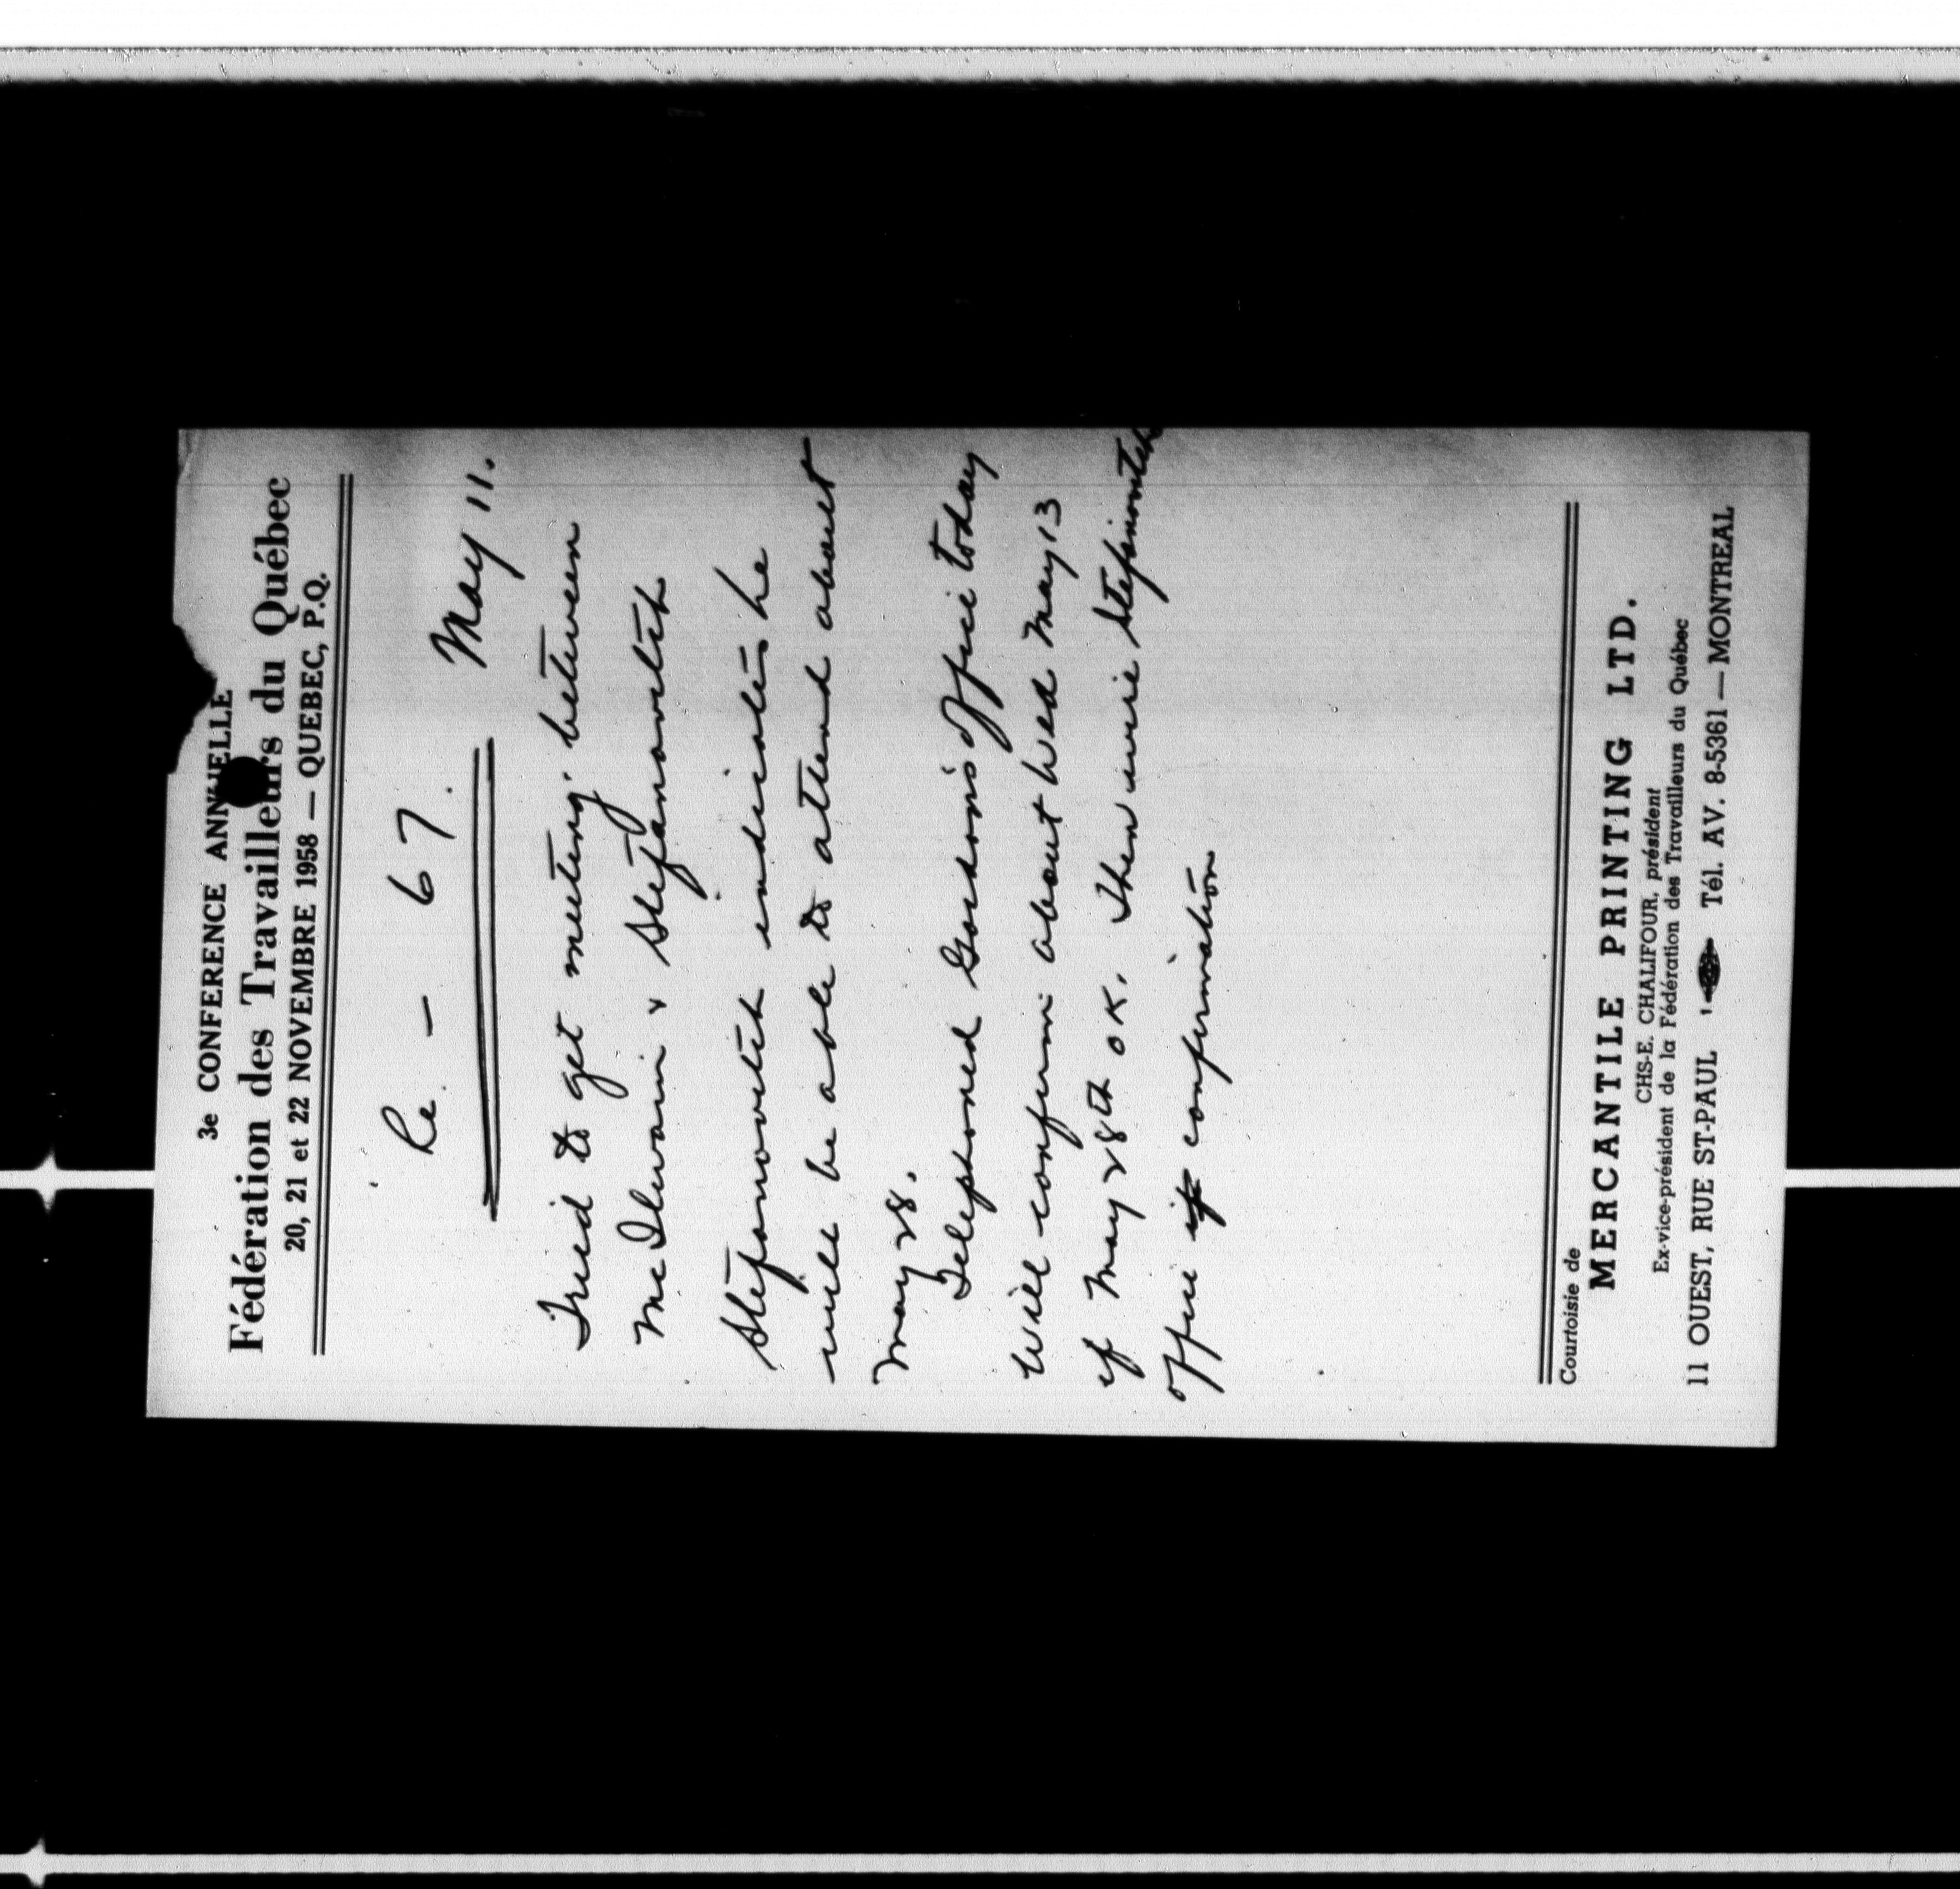 3e CONFERENCE ANNUELLE
Fédération des Travailleurs du Québec
20, 21 et 22 NOVEMBRE 1958 — QUEBEC, P.Q.
Re. - 67.
May 11.
Tried to get meeting between
McIlwain & Stefanovitch
Stefanovitch indicates he
will be able to attend about
May 28.
Telephoned Gordons office today
Will confirm about Wed May 13
if May 28th OK. Then wire Stefanovitch
office if confirmation
Courtoisie de
MERCANTILE PRINTING LTD.
CHS-E. CHALIFOUR, président
Ex-vice-président de la Fédération des Travailleurs du Québec
11 OUEST, RUE ST-PAUL Tél. AV. 8-5361 — MONTREAL